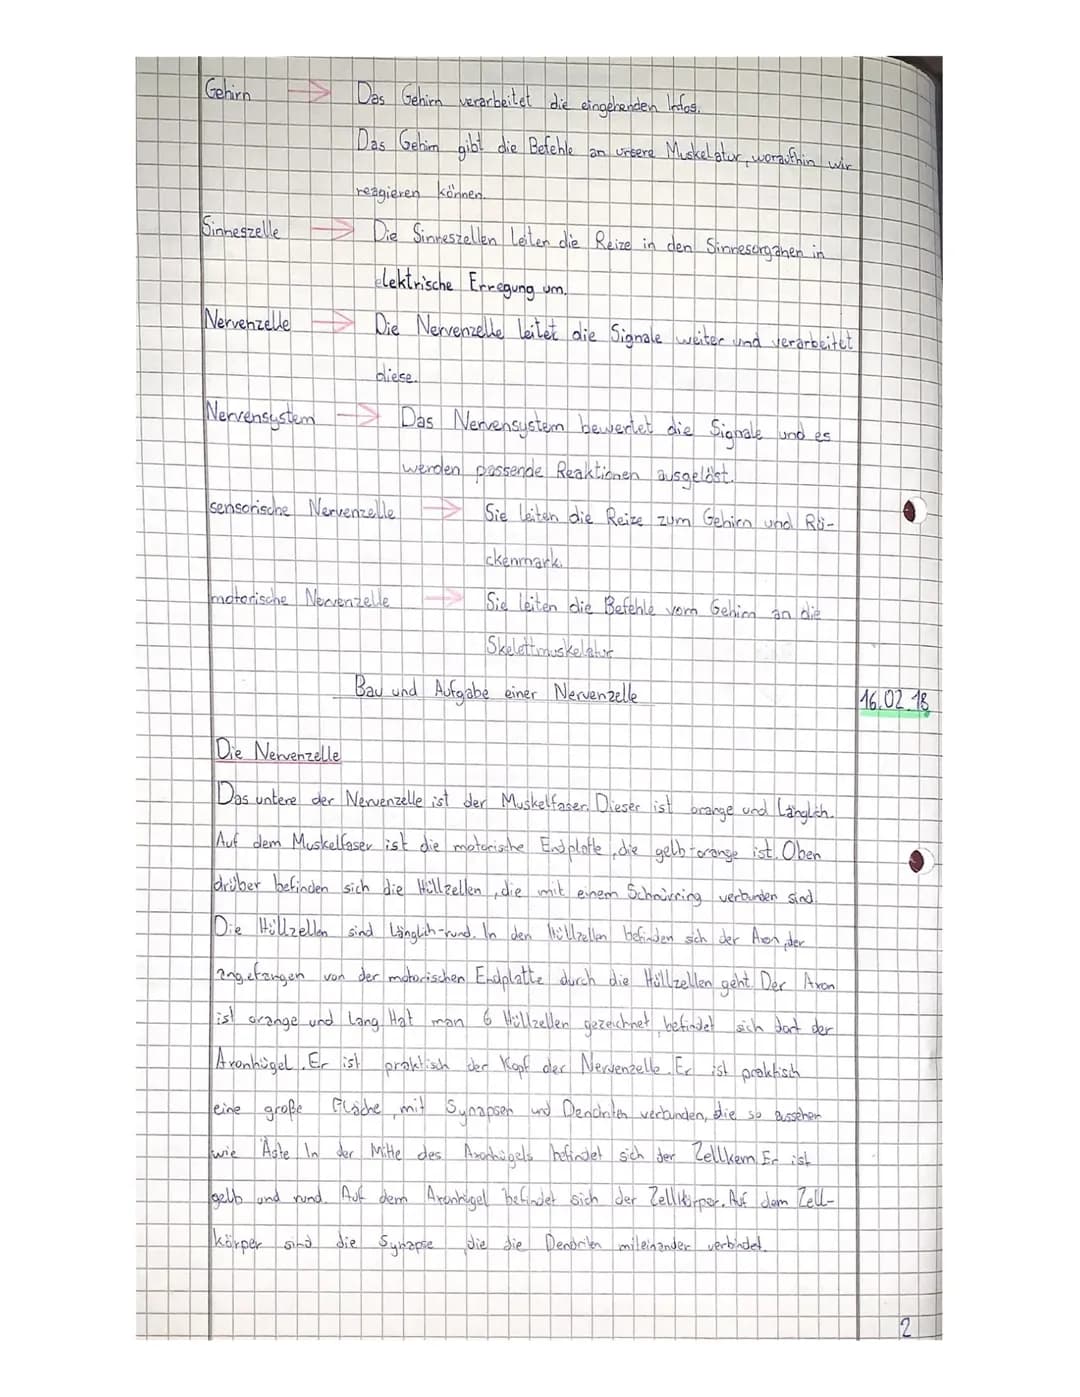 Gehirn → Das Gehirn verarbeitet die eingehenden Infos.
Das Gehirn gibt die Befehle an unsere Muskelatur, woraufhin wir
reagieren können.
Sinneszelle → Die Sinneszellen leiten die Reize in den Sinnesorganen in
elektrische Erregung um.
Nervenzelle → Die Nervenzelle leitet die Signale weiter und verarbeitet
diese.
Nervensystem → Das Nervensystem bewertet die Signale und es
werden passende Reaktionen ausgelöst.
sensorische Nervenzelle → Sie leiten die Reize zum Gehirn und Rü-
ckenmark.
motorische Nervenzelle → Sie leiten die Befehle vom Gehirn an die
Skelettmuskelatur
Bau und Aufgabe einer Nervenzelle 16.02.18
Die Nervenzelle
Das untere der Nervenzelle ist der Muskelfaser. Dieser ist orange und Länglich.
Auf dem Muskelfaser ist die motorische Endplatte, die gelb-orange ist. Oben
drüber befinden sich die Hüllzellen, die mit einem Schnürring verbunden sind.
Die Hüllzellen sind länglich-rund. In den Hüllzellen befinden sich der Axon, der
angefangen von der motorischen Endplatte durch die Hüllzellen geht. Der Axon
ist orange und lang. Hat man 6 Hüllzellen gezeichnet, befindet sich dort der
Axonhügel. Er ist praktisch der Kopf der Nervenzelle. Er ist praktisch
eine große Fläche, mit Synapsen und Dendriten verbunden, die so aussehen
wie Äste. In der Mitte des Axonhügels befindet sich der Zellkern. Er ist
gelb und rund. Auf dem Axonhügel befindet sich der Zellkörper. Auf dem Zell-
körper sind die Synapse, die die Dendriten mileinander verbindet.
2